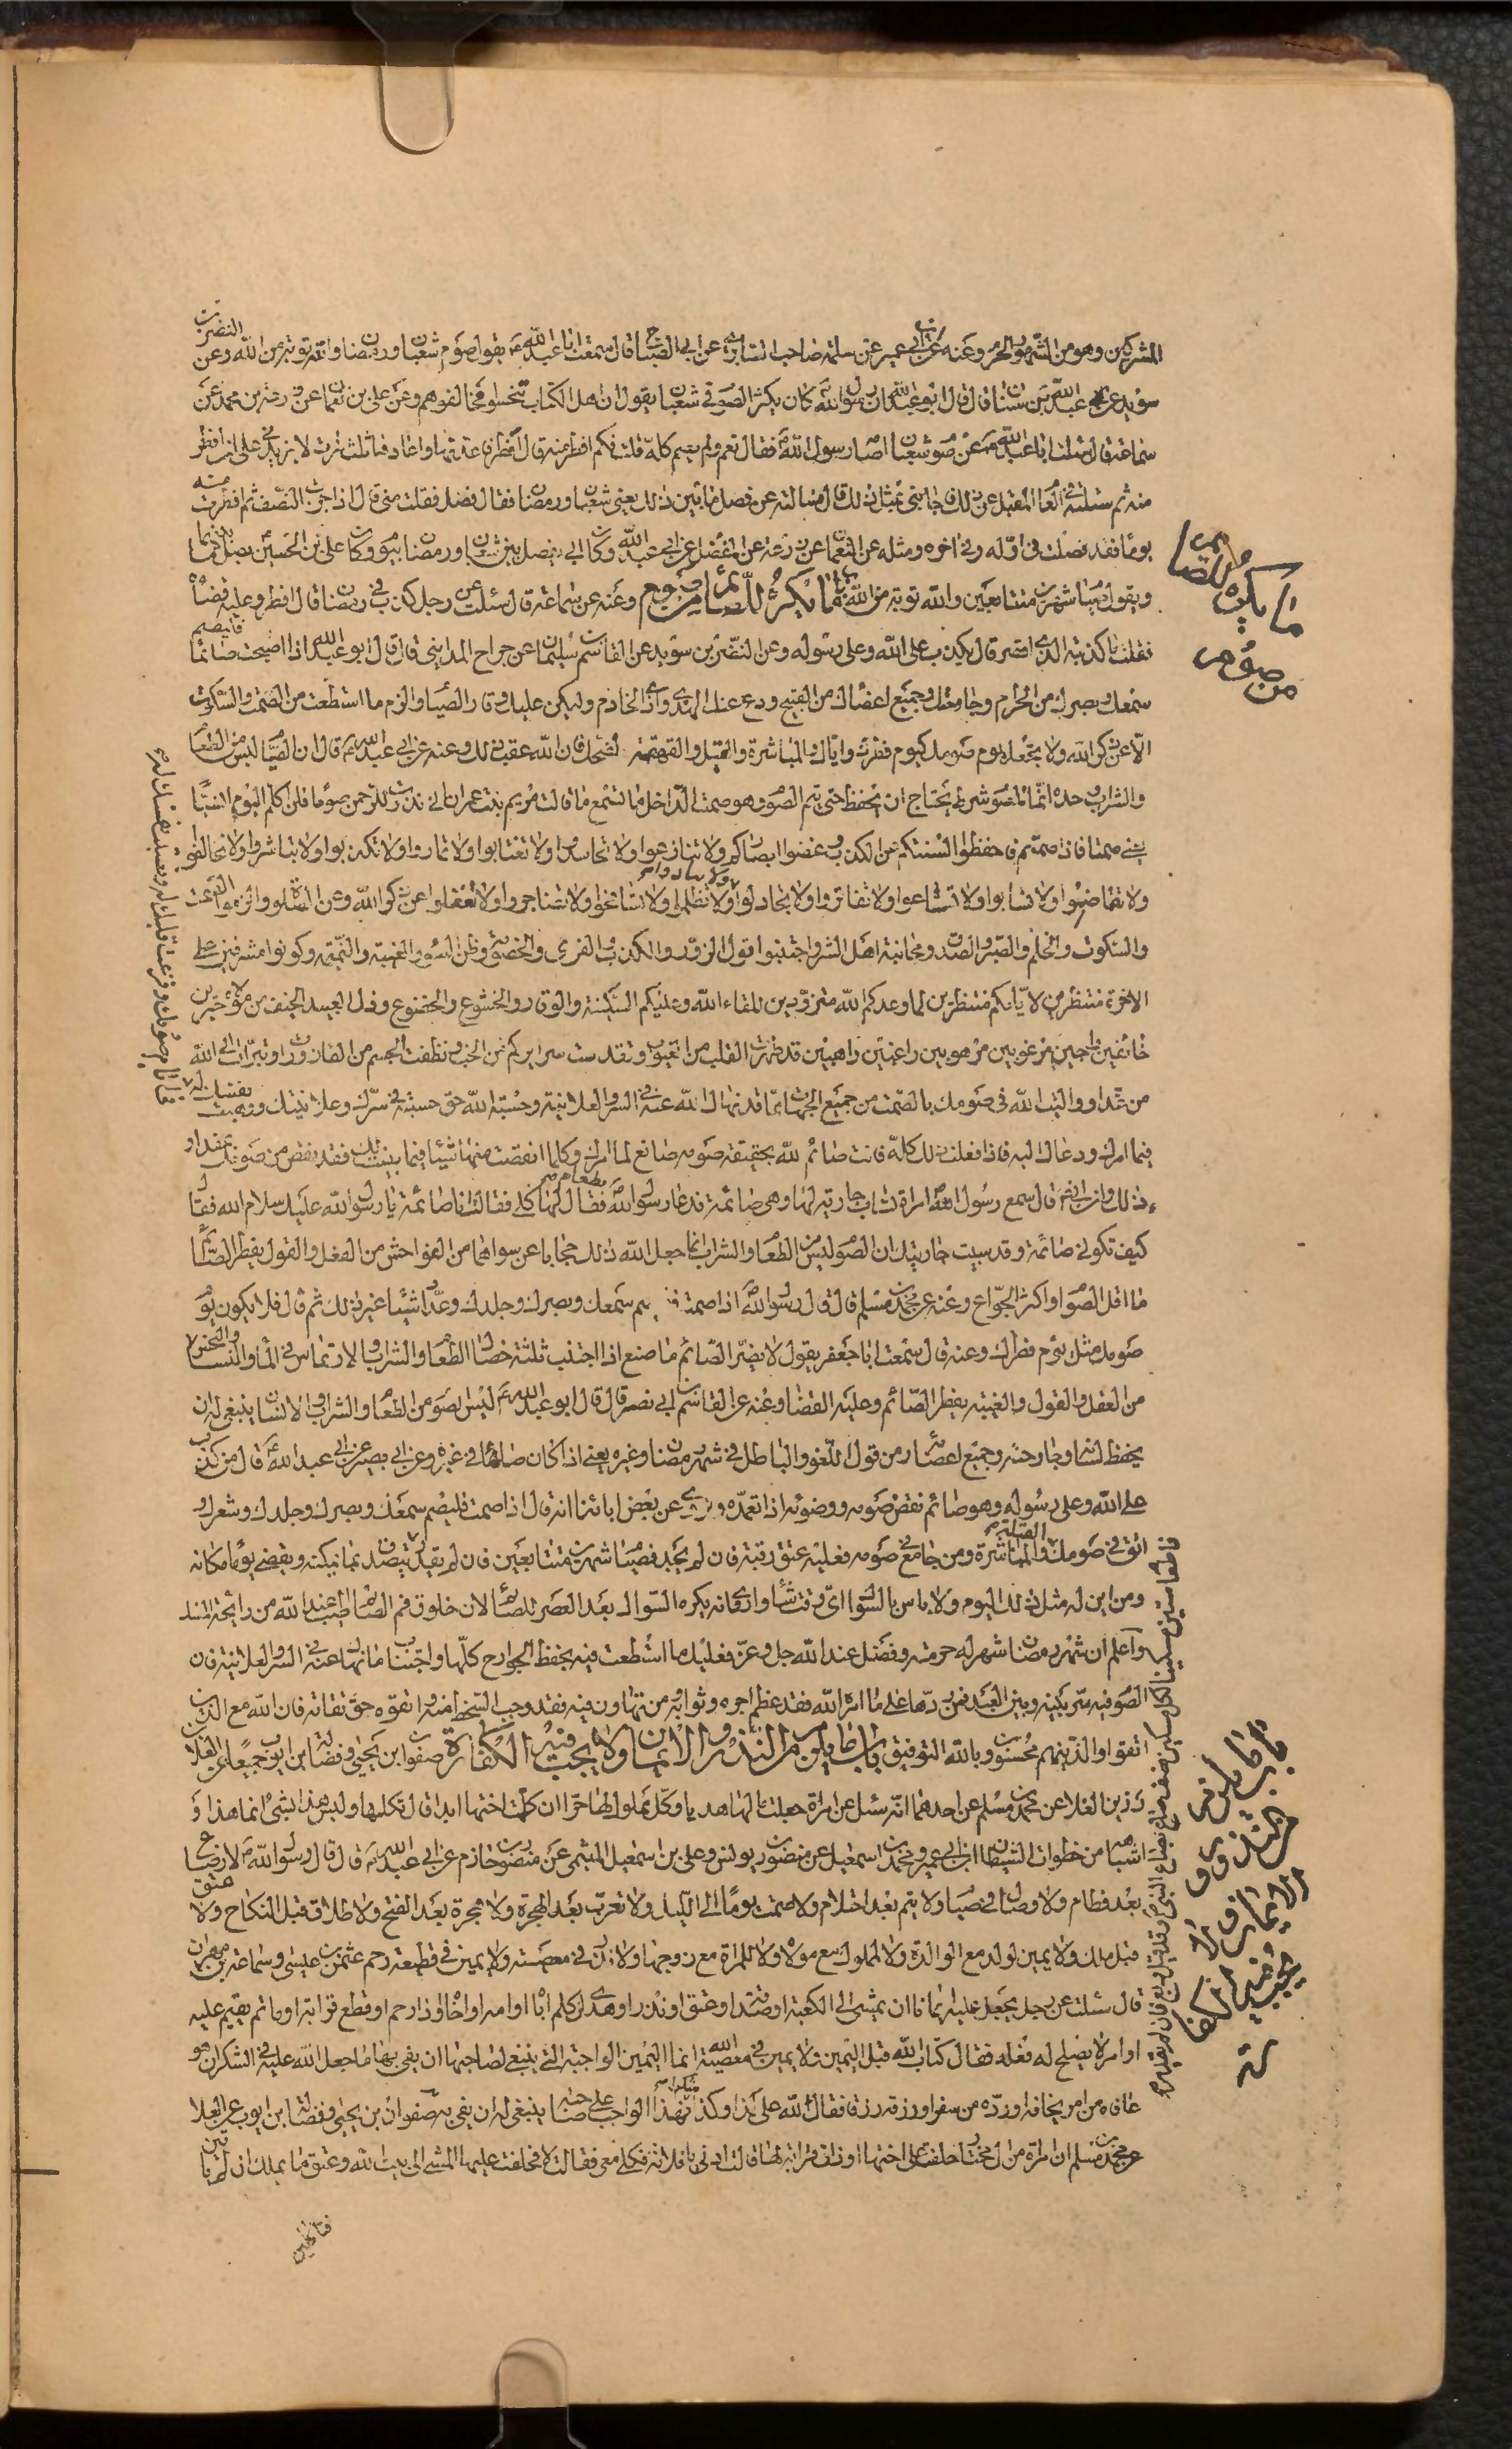 المشركين وهو من الشهور الحرم وعنه عن ابن ابي عمير عن سلمة صاحب السابري عن ابي الصباح قال سمعت ابا عبد الله ع يقول صوم شعبان ورمضان والله توبة من الله وعن النضر بن
سويد عن عبد الله بن سنان قال قال ابو عبد الله ان رسول الله كان يكثر الصوم في شعبان يقول ان اهل الكتاب تنحسوا فخالفوهم وعن علي بن نعمان عن زرعة بن محمد عن
سماعة قال سئلت ابا عبد الله ع عن صوم شعبان اصامه رسول الله فقال نعم ولم يصمه كله قلت فكم افطر منه قال افطر فاعدتها واعادها ثلث مرات لا يزيدني على ان افطر
منه ثم سئلته في العام المقبل عن ذلك فاجابني بمثل ذلك قال فسالته عن فصل ما بين ذلك يعني شعبان ورمضان فقال فصل فقلت متى قال اذا جزت النصف ثم افطرت منه
يوما فقد فصلت في اوله وفي اخره ومثله عن النعمان عن زرعة عن المفضل عن ابي عبد الله وكان ابي يفصل بين شعبان ورمضان بيوم وكان علي بن الحسين يصل بينهما
ويقول صيام شهرين متتابعين والله توبة من الله باب ما يكره للصائم من صومه وعنه عن سماعة قال سئلت عن رجل كذب في رمضان قال افطر وعليه قضاؤه
فقلت ما كذبته الذي افطر قال يكذب على الله وعلى رسوله وعن النضر بن سويد عن القاسم بن سليمان عن جراح المدايني قال قال ابو عبد الله اذا اصبحت صائما فليصم
سمعك وبصرك من الحرام وجارحتك وجميع اعضائك من القبيح ودع عنك الهذي واذى الخادم وليكن عليك وقار الصيام والزم ما استطعت من الصمت والسكوت
الا عن ذكر الله ولا تجعل يوم صومك كيوم فطرك واياك والمباشرة والقبل والقهقهة بالضحك فان الله مقت ذلك وعنه عن ابي عبد الله ع قال ان الصيام ليس من الطعام
والشراب وحده انما للصوم شرط يحتاج ان يحفظ حتى يتم الصوم وهو صمت الداخل اما تسمع ما قالت مريم بنت عمران اني نذرت للرحمن صوما فلن اكلم اليوم انسيا
يعني صمتا فاذا صمتم فاحفظوا السنتكم عن الكذب وغضوا ابصاركم ولا تنازعوا ولا تحاسدوا ولا تغتابوا ولا تماروا ولا تكذبوا ولا تباشروا ولا تخالفوا
ولا تغاضبوا ولا تسابوا ولا تشاتموا ولا تفاتروا ولا تجادلوا ولا تظلموا ولا تسافهوا ولا تضاجروا ولا تغفلوا عن ذكر الله وعن الصلوة والزموا الصمت
والسكوت والحلم والصبر والصدق ومجانبة اهل الشر واجتنبوا قول الزور والكذب والفري والخصومة وظن السوء والغيبة والنميمة وكونوا مشرفين على
الاخرة منتظرين لايامكم منتظرين لما وعدكم الله متزودين للقاء الله وعليكم السكينة والوقار والخشوع والخضوع وذل العبيد الخيف من مولاه خيرين
خائفين راجين مرغوبين مرهوبين راغبين راهبين قد طهرت القلب من العيوب وتقدست سرايركم من الخبث ونظفت الجسم من القاذورات وتبرات الى الله
من عداه وواليت الله في صومك بالصمت من جميع الجهات مما قد نهاك الله عنه في السر والعلانية وخشيت الله حق خشيته في سرك وعلانيتك ووهبت نفسك لله
فيما امرك ودعاك اليه فاذا فعلت ذلك كله فانت صائم لله بحقيقة صومه صانع لما امرك وكلما انقصت منها شيئا فيما بينت لك فقد نقص من صومك بمقدار
ذلك وان ابي قال سمع رسول الله امراة تساب جارية لها وهي صائمة فدعا رسول الله بطعام فقال لها كلي فقالت انا صائمة يا رسول الله عليك سلام الله فقال
كيف تكوني صائمة وقد سببت جاريتك ان الصوم ليس من الطعام والشراب انما جعل الله ذلك حجابا عن سواهما من الفواحش من الفعل والقول يفطر الصائم
ما اقل الصوام واكثر الجواع وعنه عن محمد بن مسلم قال قال رسول الله اذا صمت فليصم سمعك وبصرك وجلدك وعد اشياء غير ذلك ثم قال فلا يكون يوم
صومك مثل يوم فطرك وعنه قال سمعت ابا جعفر يقول لا يضر الصائم ما صنع اذا اجتنب ثلثة خصال الطعام والشراب والارتماس في الماء والنساء والنخس
من الفعل والقول والغيبة يفطر الصائم وعليه القضاء وعنه عن القاسم عن ابي بصير قال قال ابو عبد الله ع ليس الصوم من الطعام والشراب والانسان ينبغي له ان
يحفظ لسانه وجارحته وجميع اعضائه من قول اللغو والباطل في شهر رمضان وغيره يعني اذا كان صائما في غيره وعن ابي بصير عن ابي عبد الله قال من كذب
على الله وعلى رسوله وهو صائم نقض صومه ووضوئه اذا تعمده وروي عن بعض ابائنا انه قال اذا صمت فليصم سمعك وبصرك وجلدك وشعرك
اتق في صومك القبلة والمباشرة ومن جامع في صومه فعليه عتق رقبة فان لم يجد فصيام شهرين متتابعين فان لم يقدر تصدق بما يمكنه ويقضي يوما مكانه
ومن اين له مثل ذلك اليوم ولا باس بالسواك اي وقت شاء واروي انه يكره السواك بعد العصر للصائم لان خلوق فم الصائم اطيب عند الله من رائحة المسك
واعلم ان شهر رمضان شهر له حرمة وفضل عند الله جل وعز فعليك ما استطعت فيه بحفظ الجوارح كلها واجتناب ما نهاك عنه في السر والعلانية فان
الصوم فيه سر بينه وبين العبد فمن ردها على ما امره الله فقد عظم اجره وثوابه ومن تهاون فيه فقد وجب السخط منه واتقوه حق تقاته فان الله مع الذين
اتقوا والذين هم محسنون وبالله التوفيق باب ما يلزم من النذور والايمان ولا يجب فيه الكفارة صفوان بن يحيى وفضالة بن ايوب جميعا عن العلا
رزين العلا عن محمد بن مسلم عن احدهما انه سئل عن امراة جعلت مالها هديا وكل مملوك لها حرا ان كلمت اختها ابدا قال تكلمها وليس هذا بشئ انما هذا و
اشباهه من خطوات الشيطان ابن ابي عمير ومحمد بن اسمعيل عن منصور بن يونس وعلي بن اسمعيل الميثمي عن منصور بن حازم عن ابي عبد الله ع قال قال رسول الله لا رضاع
بعد فطام ولا وصال في صيام ولا يتم بعد احتلام ولا صمت يوما الى الليل ولا تعرب بعد الهجرة ولا هجرة بعد الفتح ولا طلاق قبل النكاح ولا عتق
قبل ملك ولا يمين لولد مع الوالدة ولا لمملوك مع مولاه ولا للمراة مع زوجها ولا نذر في معصية ولا يمين في قطيعة رحم عثمن بن عيسى وسماعة بن مهران
قال سئلت عن رجل يجعل عليه ايمانا ان يمشي الى الكعبة او صدقة او عتق او نذر او هدي ان كلم اباه او امه او اخاه او ذا رحم او قطع قرابة او ماثم يقيم عليه
او امر لا يصلح له فعله فقال كتاب الله قبل اليمين ولا يمين في معصية الله انما اليمين الواجبة التي ينبغي لصاحبها ان يفي بها ما جعل الله عليه في الشكر ان هو
عافاه من امر يخافه او رده من سفر او رزقه رزقا فقال لله علي كذا وكذا شكرا فهذا الواجب على صاحبه ينبغي له ان يفي به صفوان بن يحيى وفضالة بن ايوب عن العلا
عن محمد بن مسلم ان امراة من ال مختار حلفت على اختها او ذات قرابة لها قالت ادني يا فلانة فكلي معي فقالت لا فحلفت عليها المشي الى بيت الله وعتق ما يملك ان لم تاتين
ما يكره للصائم
من صومه
باب ما يلزم
من النذور و
الايمان ولا
يجب فيه الكفا
رة